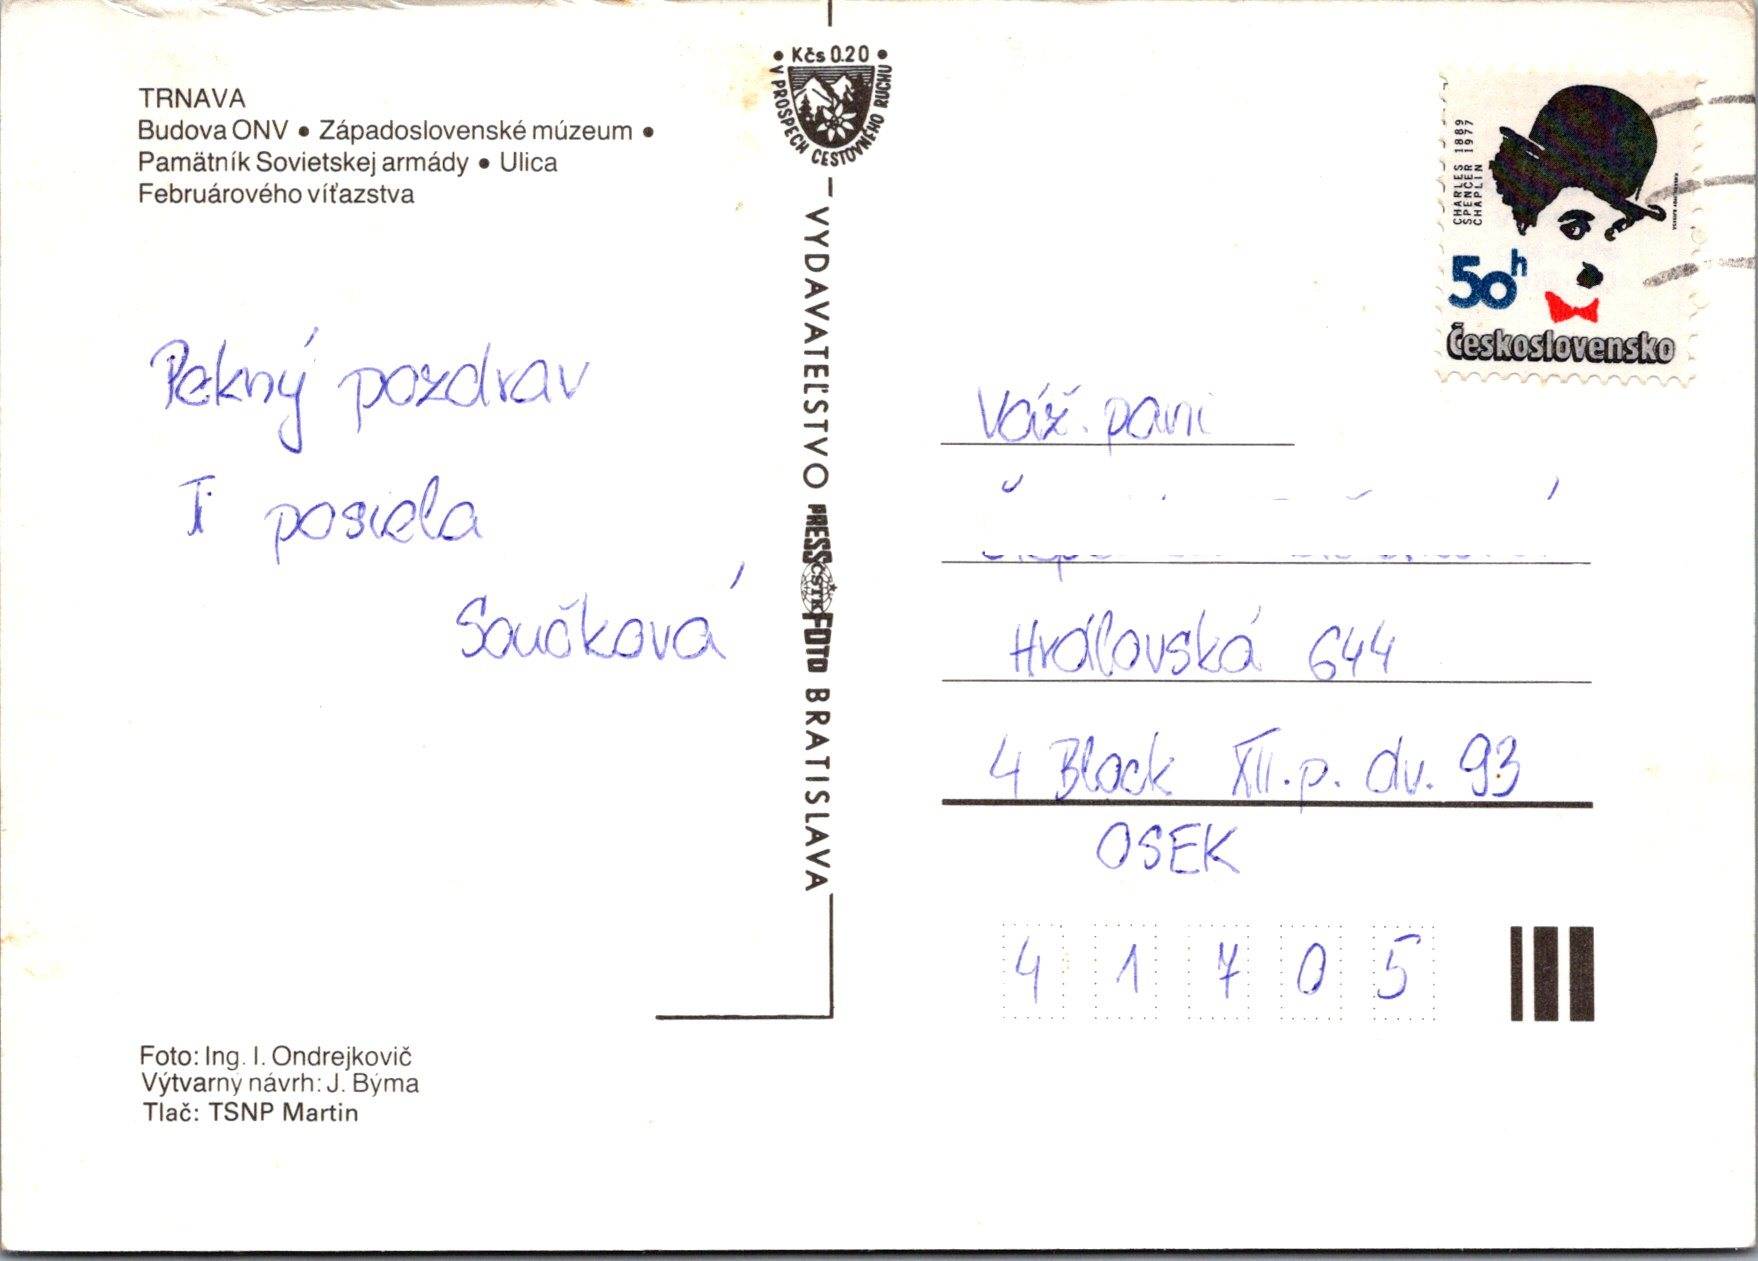 TRNAVA
Budova ONV • Západoslovenské múzeum •
Pamätník Sovietskej armády • Ulica
Februárového víťazstva
Pekný pozdrav
Ti posiela
Součková
Foto: Ing. I. Ondrejkovič
Výtvarný návrh: J. Býma
Tlač: TSNP Martin
• Kčs 0.20 •
V PROSPECH CESTOVNÉHO RUCHU
VYDAVATEĽSTVO PRESSFOTO BRATISLAVA
ČSTK
CHARLES 1889
SPENCER 1977
CHAPLIN
50h
Československo
Váž. pani
Hrdlovská 644
4 Block XII.p. dv. 93
OSEK
41705